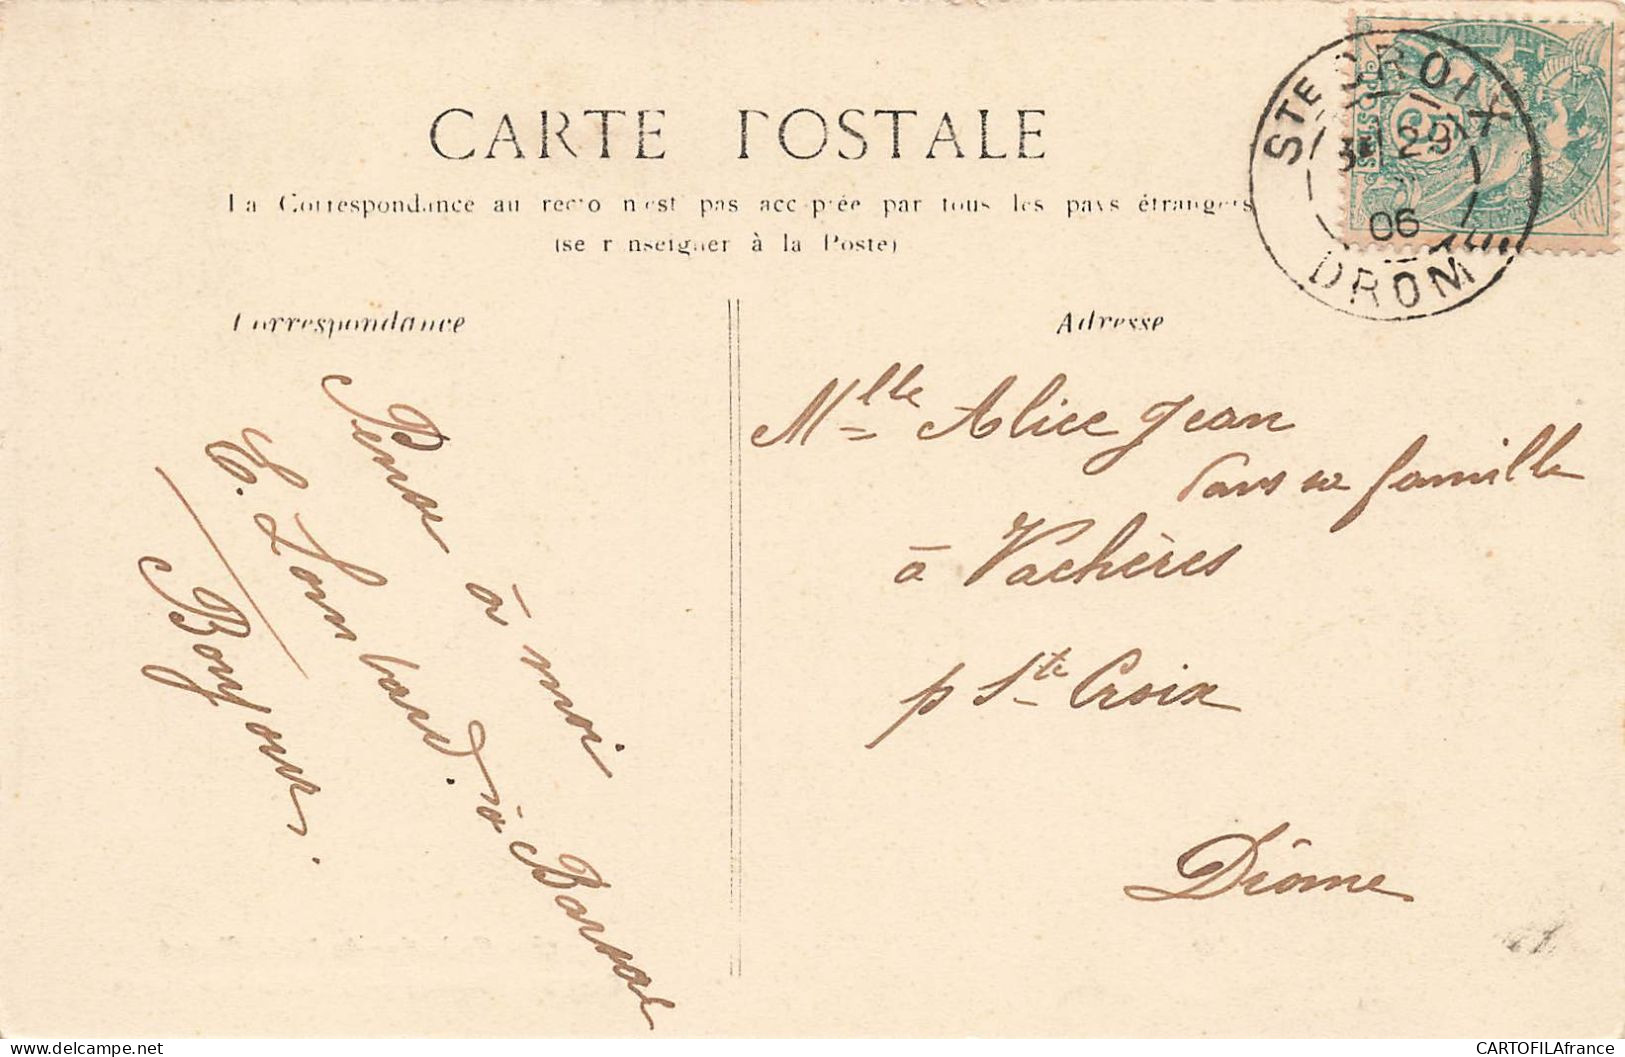 CARTE POSTALE
La Correspondance au recto n'est pas acceptée par tous les pays étrangers
(se renseigner à la Poste)
Correspondance
Adresse
STE CROIX
29
06
DROM
POSTES
Pense à moi
E. Lombard. à Barsac
Bonjour.
Mlle Alice Jean
Dans sa famille
à Vachères
p Ste Croix
Drôme
CARTOFILAfrance